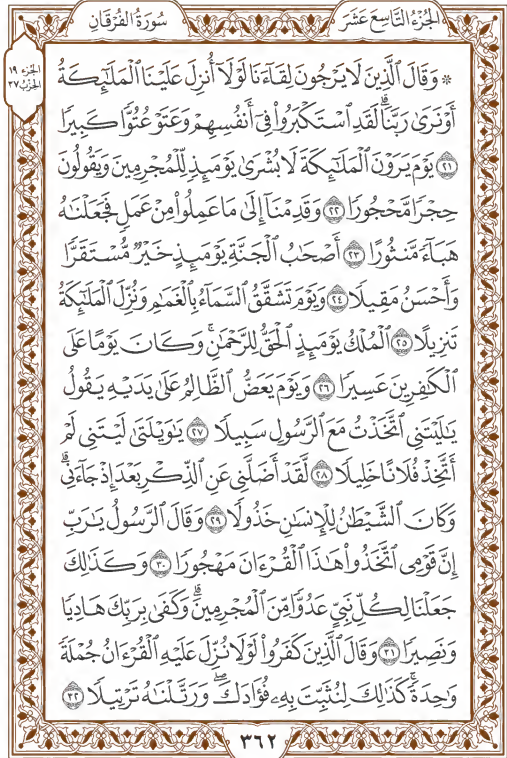 الجُزْءُ التَّاسِعَ عَشَرَ
سُورَةُ الفُرْقَانِ
الجزء ١٩
الحزب ٣٧
۞ وَقَالَ ٱلَّذِينَ لَا يَرْجُونَ لِقَآءَنَا لَوْلَآ أُنزِلَ عَلَيْنَا ٱلْمَلَٰٓئِكَةُ
أَوْ نَرَىٰ رَبَّنَاۗ لَقَدِ ٱسْتَكْبَرُوا۟ فِىٓ أَنفُسِهِمْ وَعَتَوْ عُتُوًّا كَبِيرًا
٢١ يَوْمَ يَرَوْنَ ٱلْمَلَٰٓئِكَةَ لَا بُشْرَىٰ يَوْمَئِذٍ لِّلْمُجْرِمِينَ وَيَقُولُونَ
حِجْرًا مَّحْجُورًا ٢٢ وَقَدِمْنَآ إِلَىٰ مَا عَمِلُوا۟ مِنْ عَمَلٍ فَجَعَلْنَٰهُ
هَبَآءً مَّنثُورًا ٢٣ أَصْحَٰبُ ٱلْجَنَّةِ يَوْمَئِذٍ خَيْرٌ مُّسْتَقَرًّا
وَأَحْسَنُ مَقِيلًا ٢٤ وَيَوْمَ تَشَقَّقُ ٱلسَّمَآءُ بِٱلْغَمَٰمِ وَنُزِّلَ ٱلْمَلَٰٓئِكَةُ
تَنزِيلًا ٢٥ ٱلْمُلْكُ يَوْمَئِذٍ ٱلْحَقُّ لِلرَّحْمَٰنِۚ وَكَانَ يَوْمًا عَلَى
ٱلْكَٰفِرِينَ عَسِيرًا ٢٦ وَيَوْمَ يَعَضُّ ٱلظَّالِمُ عَلَىٰ يَدَيْهِ يَقُولُ
يَٰلَيْتَنِى ٱتَّخَذْتُ مَعَ ٱلرَّسُولِ سَبِيلًا ٢٧ يَٰوَيْلَتَىٰ لَيْتَنِى لَمْ
أَتَّخِذْ فُلَانًا خَلِيلًا ٢٨ لَّقَدْ أَضَلَّنِى عَنِ ٱلذِّكْرِ بَعْدَ إِذْ جَآءَنِىۗ
وَكَانَ ٱلشَّيْطَٰنُ لِلْإِنسَٰنِ خَذُولًا ٢٩ وَقَالَ ٱلرَّسُولُ يَٰرَبِّ
إِنَّ قَوْمِى ٱتَّخَذُوا۟ هَٰذَا ٱلْقُرْءَانَ مَهْجُورًا ٣٠ وَكَذَٰلِكَ
جَعَلْنَا لِكُلِّ نَبِىٍّ عَدُوًّا مِّنَ ٱلْمُجْرِمِينَۗ وَكَفَىٰ بِرَبِّكَ هَادِيًا
وَنَصِيرًا ٣١ وَقَالَ ٱلَّذِينَ كَفَرُوا۟ لَوْلَا نُزِّلَ عَلَيْهِ ٱلْقُرْءَانُ جُمْلَةً
وَٰحِدَةًۚ كَذَٰلِكَ لِنُثَبِّتَ بِهِۦ فُؤَادَكَۖ وَرَتَّلْنَٰهُ تَرْتِيلًا ٣٢
٣٦٢